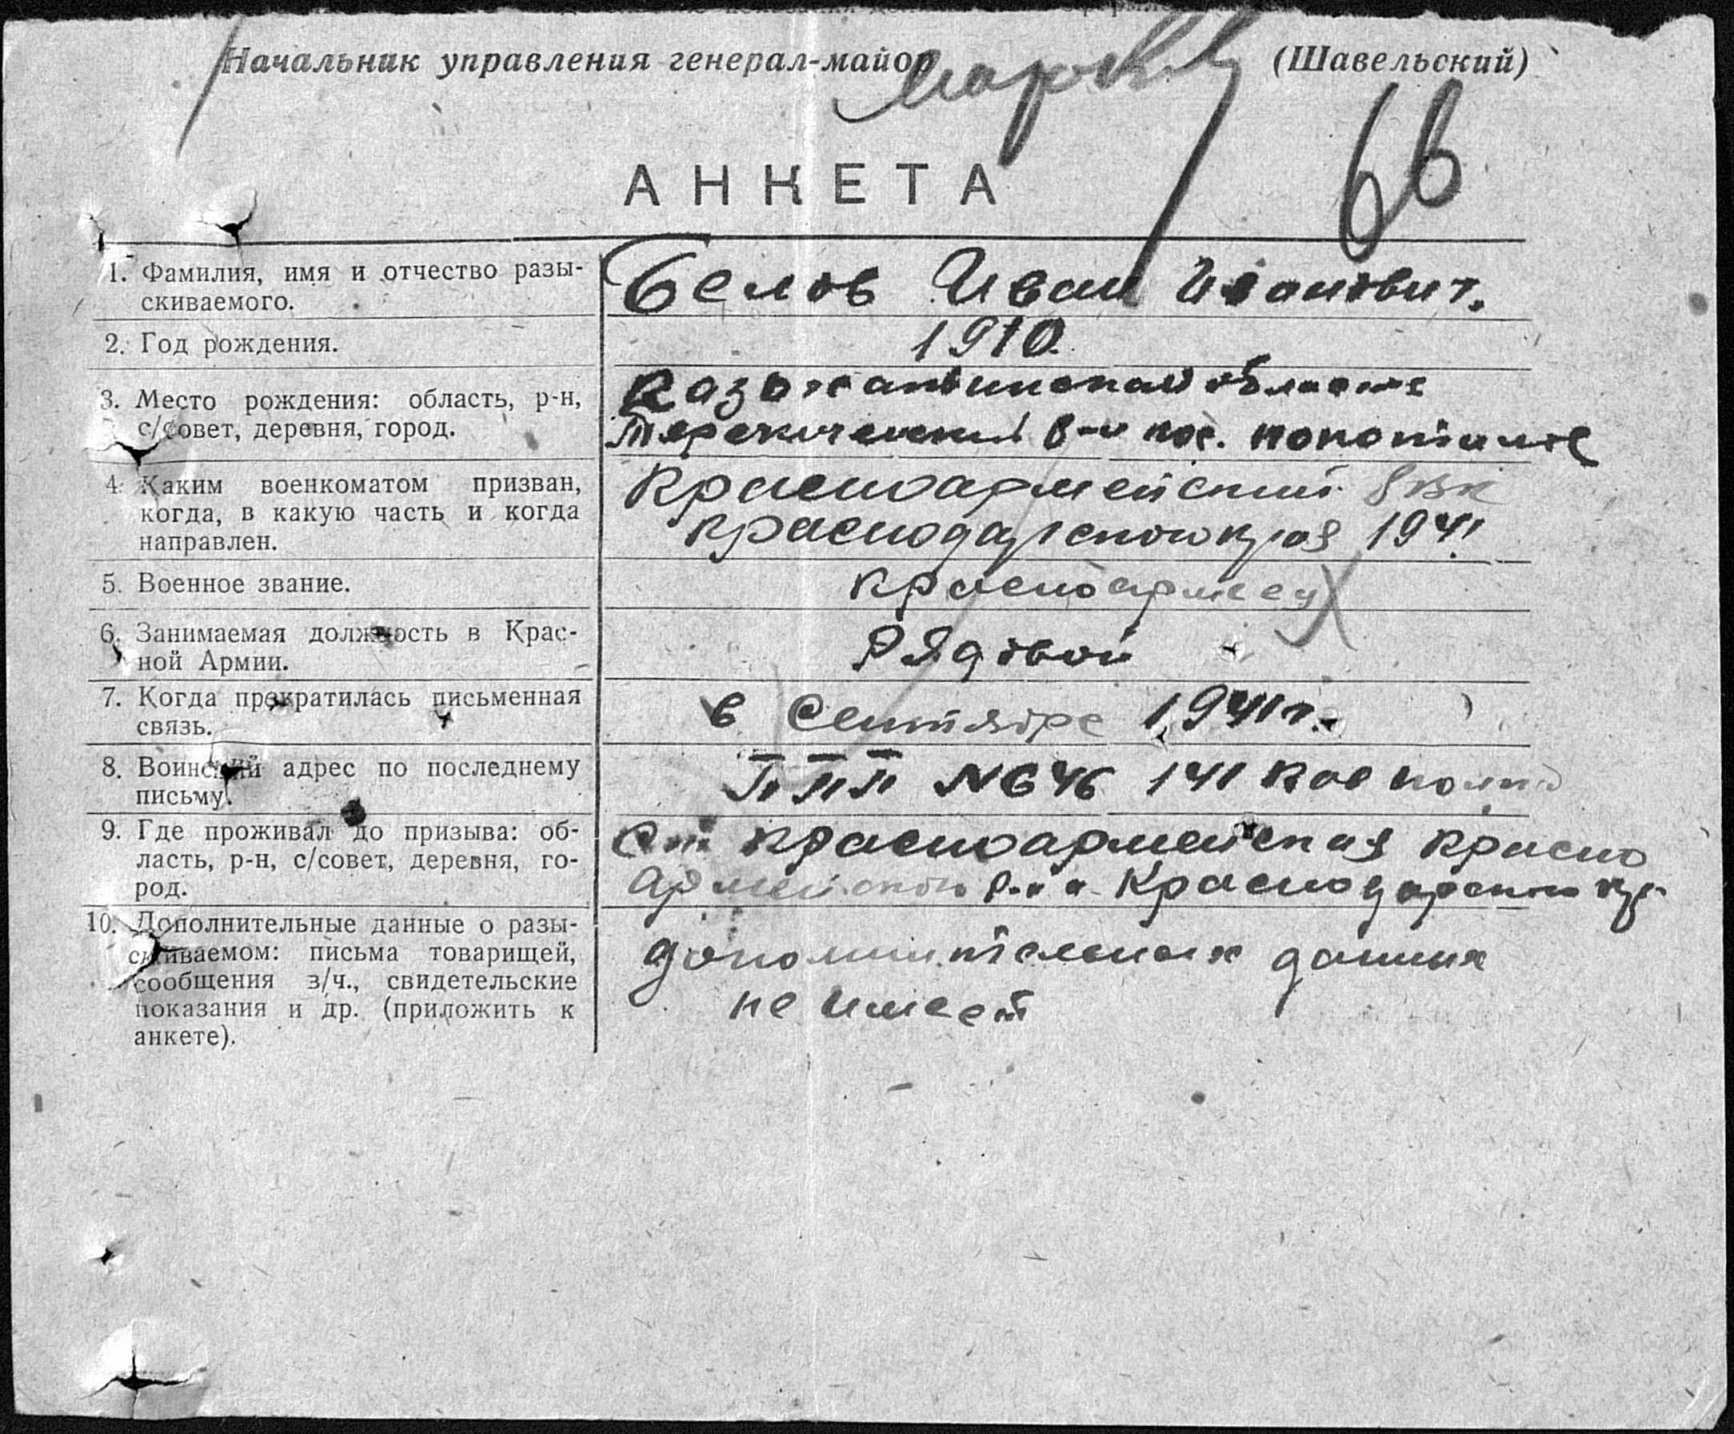 Начальник управления генерал-майор (Шавельский)
66
АНКЕТА
1. Фамилия, имя и отчество разы-
скиваемого.
Белов Иван Иванович.
2. Год рождения.
1910.
3. Место рождения: область, р-н,
с/совет, деревня, город.
области
р-н пос.
4. Каким военкоматом призван,
когда, в какую часть и когда
направлен.
Красноармейский РВК
Краснодарского края 1941
5. Военное звание.
красноармеец
6. Занимаемая должность в Крас-
ной Армии.
Рядовой
7. Когда прекратилась письменная
связь.
в Сентябре 1941 г.
8. Воинский адрес по последнему
письму.
ППП N646 141 кав полка
9. Где проживал до призыва: об-
ласть, р-н, с/совет, деревня, го-
род.
Ст. Красноармейская Красно
армейского р-на Краснодарского кр.
10. Дополнительные данные о разы-
скиваемом: письма товарищей,
сообщения з/ч., свидетельские
показания и др. (приложить к
анкете).
дополнительных данных
не имеет